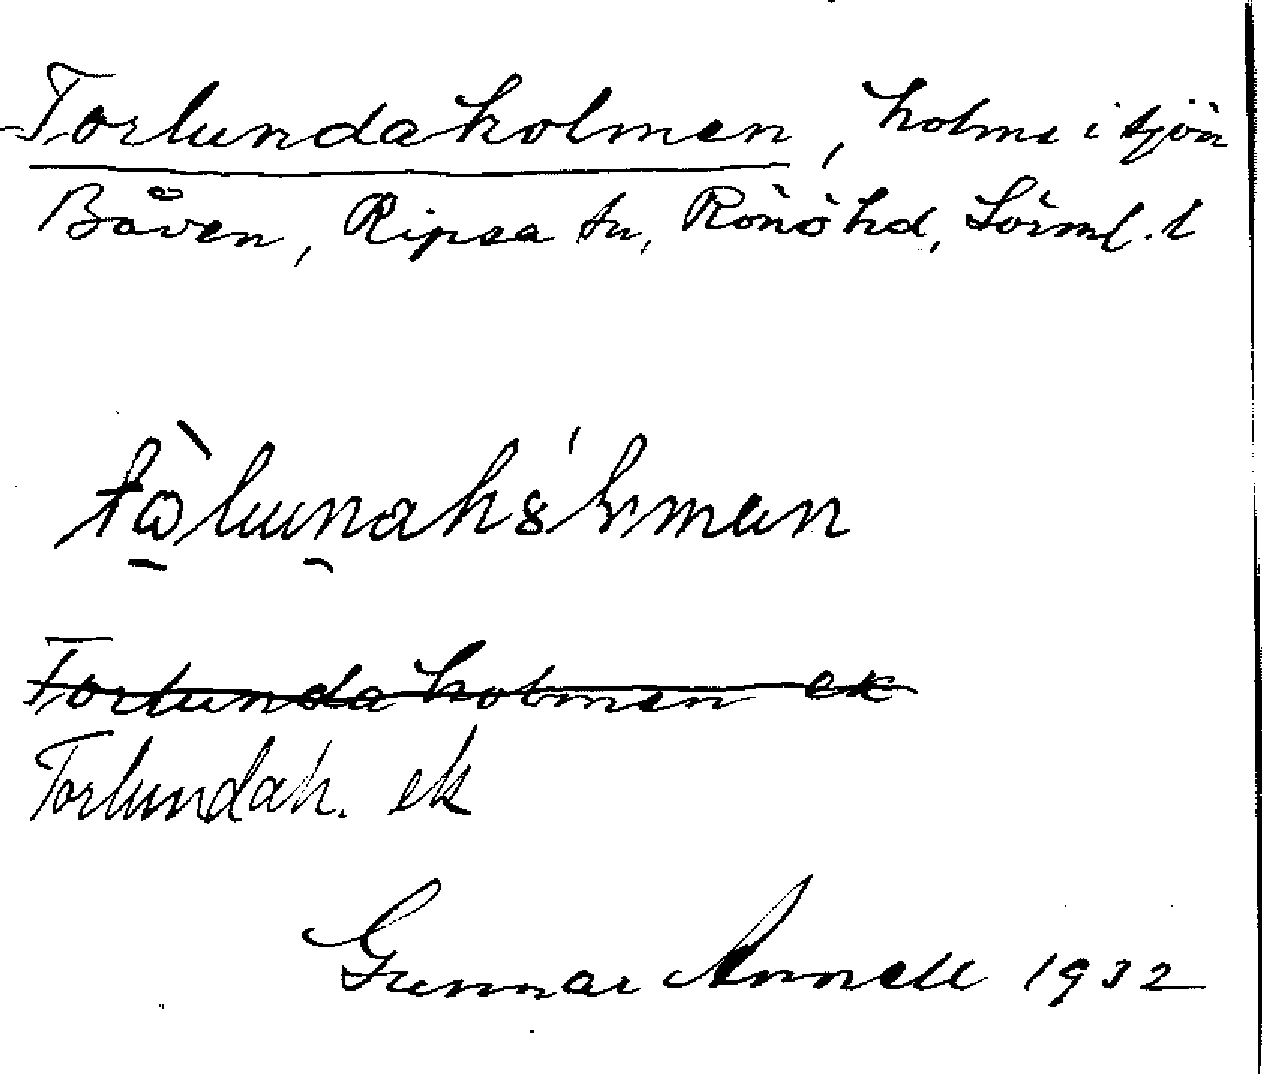 Torlundaholmen, holme i sjön
Båven, Ripsa sn, Rönö hd, Sörml. l
Torlundaholmen ek
Torlundah. ek
Gunnar Annell 1932